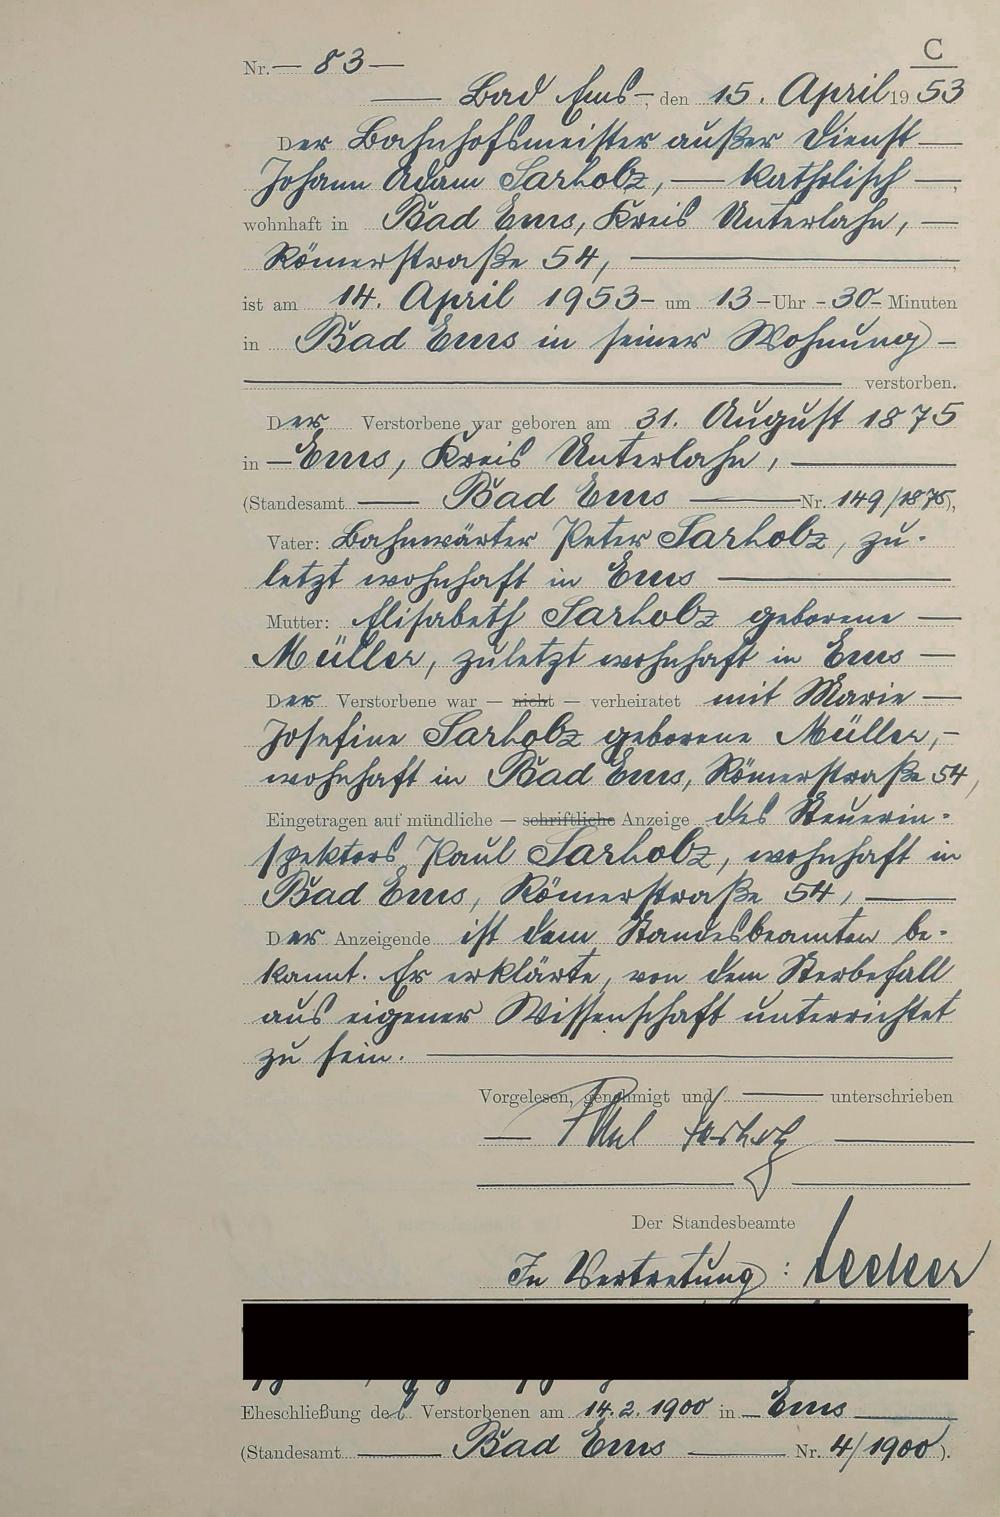 C
Nr. — 83 —
Bad Ems —, den 15. April 1953
Der Bahnhofsmeister außer Dienst —
Johann Adam Sarholz, — katholisch —,
wohnhaft in Bad Ems, Kreis Unterlahn, —
Römerstraße 54, —,
ist am 14. April 1953 – um 13 – Uhr – 30 – Minuten
in Bad Ems in seiner Wohnung —
verstorben.
Der Verstorbene war geboren am 31. August 1875
in — Ems, Kreis Unterlahn, —
(Standesamt — Bad Ems — Nr. 149/1875),
Vater: Bahnwärter Peter Sarholz, zu-
letzt wohnhaft in Ems —
Mutter: Elisabeth Sarholz geborene —
Müller, zuletzt wohnhaft in Ems —
Der Verstorbene war — nicht — verheiratet mit Marie —
Josefine Sarholz geborene Müller, —
wohnhaft in Bad Ems, Römerstraße 54,
Eingetragen auf mündliche — schriftliche Anzeige des Steuerin-
spektors Paul Sarholz, wohnhaft in
Bad Ems, Römerstraße 54, —
Der Anzeigende ist dem Standesbeamten be-
kannt. Er erklärte, von dem Sterbefall
aus eigener Wissenschaft unterrichtet
zu sein. —
Vorgelesen, genehmigt und — unterschrieben
— Paul Sarholz —
Der Standesbeamte
In Vertretung:
Eheschließung des Verstorbenen am 14.2.1900 in — Ems
(Standesamt — Bad Ems — Nr. 4/1900).